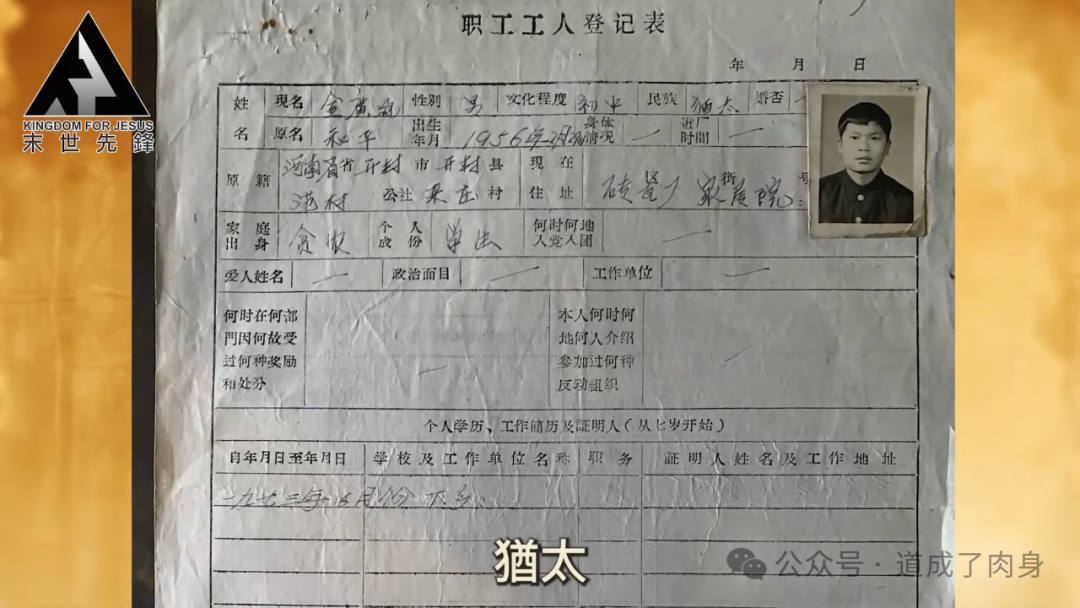 KINGDOM FOR JESUS
末世先鋒
职工工人登记表
年 月 日
姓 现名 金 性别 男 文化程度 初中 民族 猶太 婚否
名 原名 和平 出生年月 1956年 身体情况 一 进厂时间 一
原籍 河南省省 开封 市 开封 县 现在 区 街 号
公社 村 住址 家属院
家庭出身 贫农 个人成份 学生 何时何地入党入团 一
爱人姓名 一 政治面目 一 工作单位 一
何时在何部 本人何时何
門因何故受 地何人介紹
过何种奖励 一 参加过何种 一
和处分 反动組织
个人学历、工作簡历及証明人(从七岁开始)
自年月日至年月日 学校及工作单位名称 职务 証明人姓名及工作地址
一九七三年 月份 下乡
猶太
公众号·道成了肉身